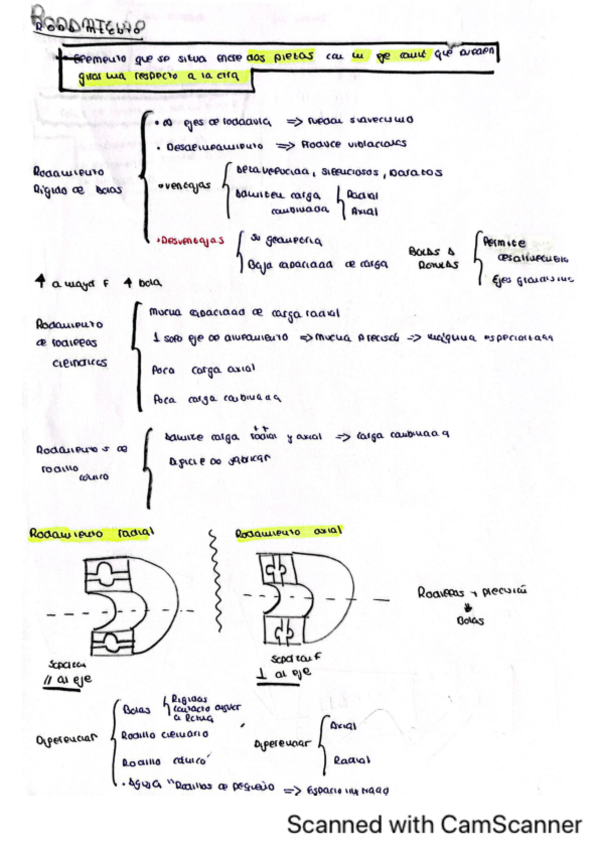 RODAMIENTO
Elemento que se situa entre dos piezas con un eje comun que pueden
girar una respecto a la otra
Rodamiento
Rigido de bolas
• ejes de rodadura => Ruedan suavemente
• Desalineamiento => Produce vibraciones
• Ventajas
Beta velocidad, silenciosos, baratos
Admiten carga
combinada
Radial
Axial
• Desventajas
Su geometria
Baja capacidad de carga
Bolas a
Rotulas
Permite
desalineacion
Ejes grandes
↑ a mayor F ↑ bola
Rodamiento
de rodillos
cilindricos
Mucha capacidad de carga radial
1 solo eje de alineamiento => Mucha precision => maquina especializada
Poca carga axial
Poca carga combinada
Rodamientos de
rodillo
conico
Admite carga radial y axial => Carga combinada
Dificil de fabricar
Rodamiento radial
Rodamiento axial
Soporta
// al eje
Soporta F
⊥ al eje
Rodillos + precision
Bolas
Diferenciar
Bolas
Rigidas
contacto angular
a Rotula
Rodillo cilindrico
Rodillo cónico
• Aguja "Rodillos de pequeño => Espacio limitado
Diferenciar
Axial
Radial
Scanned with CamScanner